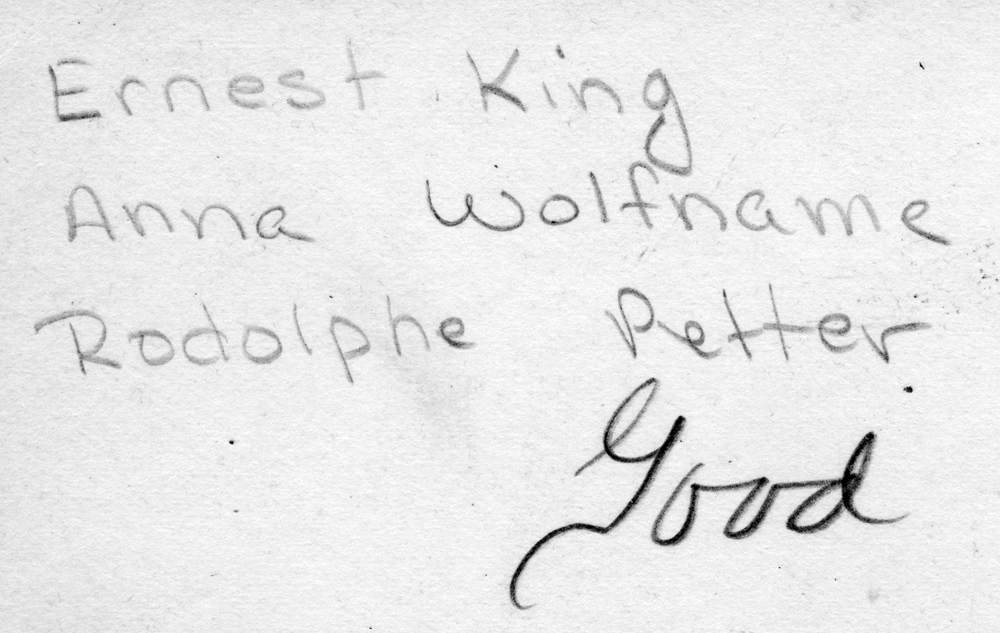 Ernest King
Anna Wolfname
Rodolphe Petter
Good